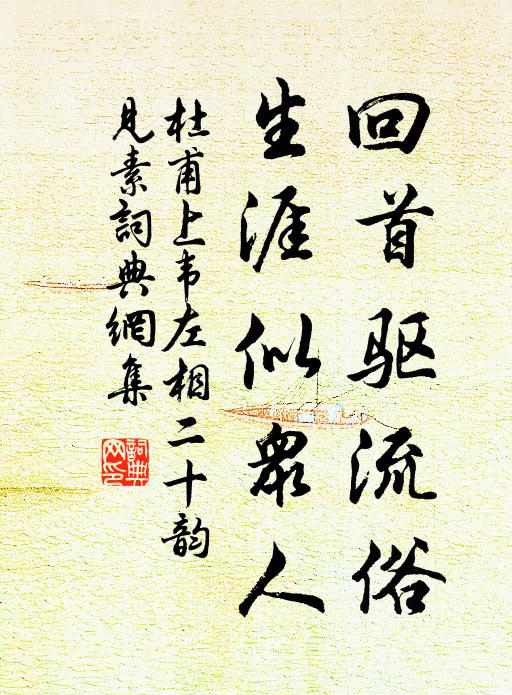 回首驱流俗
生涯似眾人
杜甫上韦左相二十韵
見素詞典網集
詞典
网印